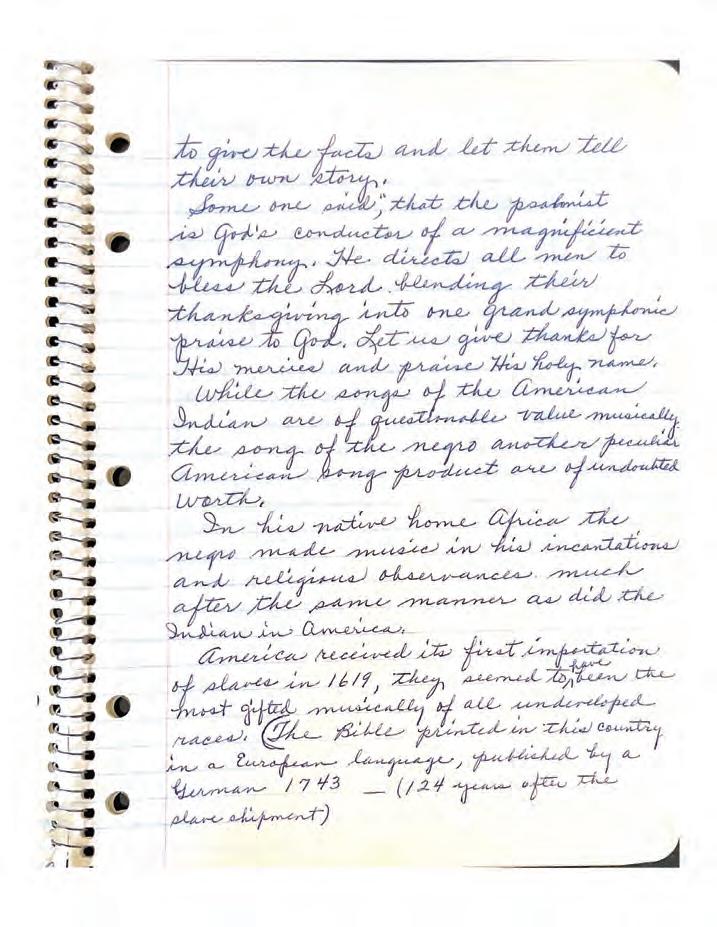 to give the facts and let them tell
their own story.
Some one said", that the psalmist
is God's conductor of a magnificient
symphony. He directs all men to
bless the Lord blending their
thanksgiving into one grand symphonic
praise to God. Let us give thanks for
His mercies and praise His holy name.
While the songs of the American
Indian are of questionable value musically,
the song of the negro another peculiar
American song product are of undoubted
worth.
In his native home Africa the
negro made music in his incantations
and religious observances much
after the same manner as did the
Indian in America.
America received its first importation
of slaves in 1619, they seemed to have been the
most gifted musically of all undeveloped
races. (The Bible printed in this country
in a European language, published by a
German 1743 — (124 years after the
slave shipment)